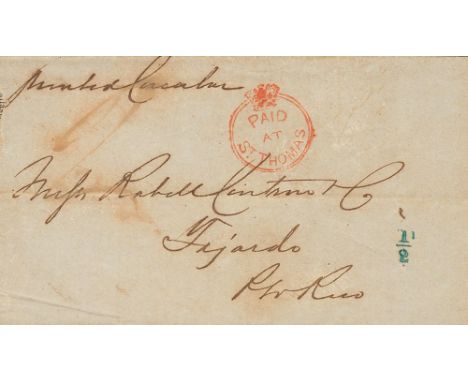 Printed Circular
PAID
AT
ST. THOMAS
Messrs Rabell Cintron & C
Fajardo
Pto Rico